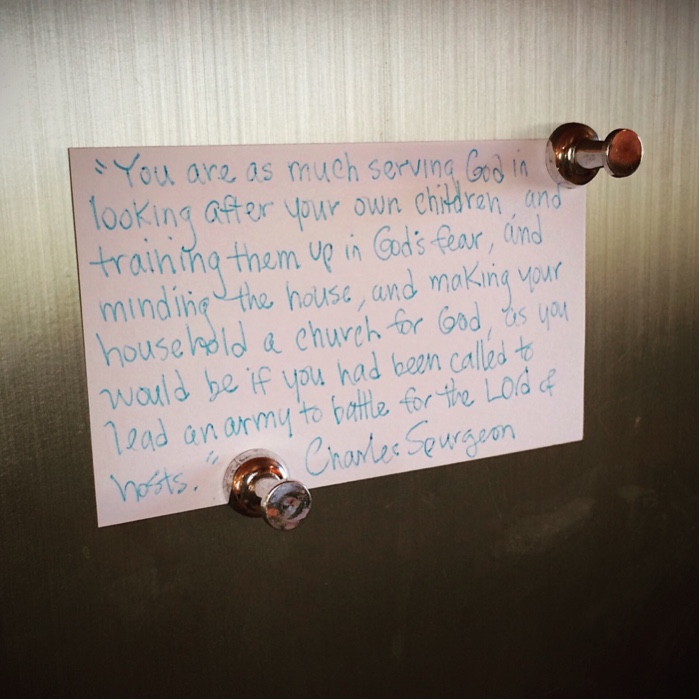 "You are as much serving God in
looking after your own children, and
training them up in God's fear, and
minding the house, and making your
household a church for God, as you
would be if you had been called to
lead an army to battle for the Lord of
hosts." Charles Spurgeon